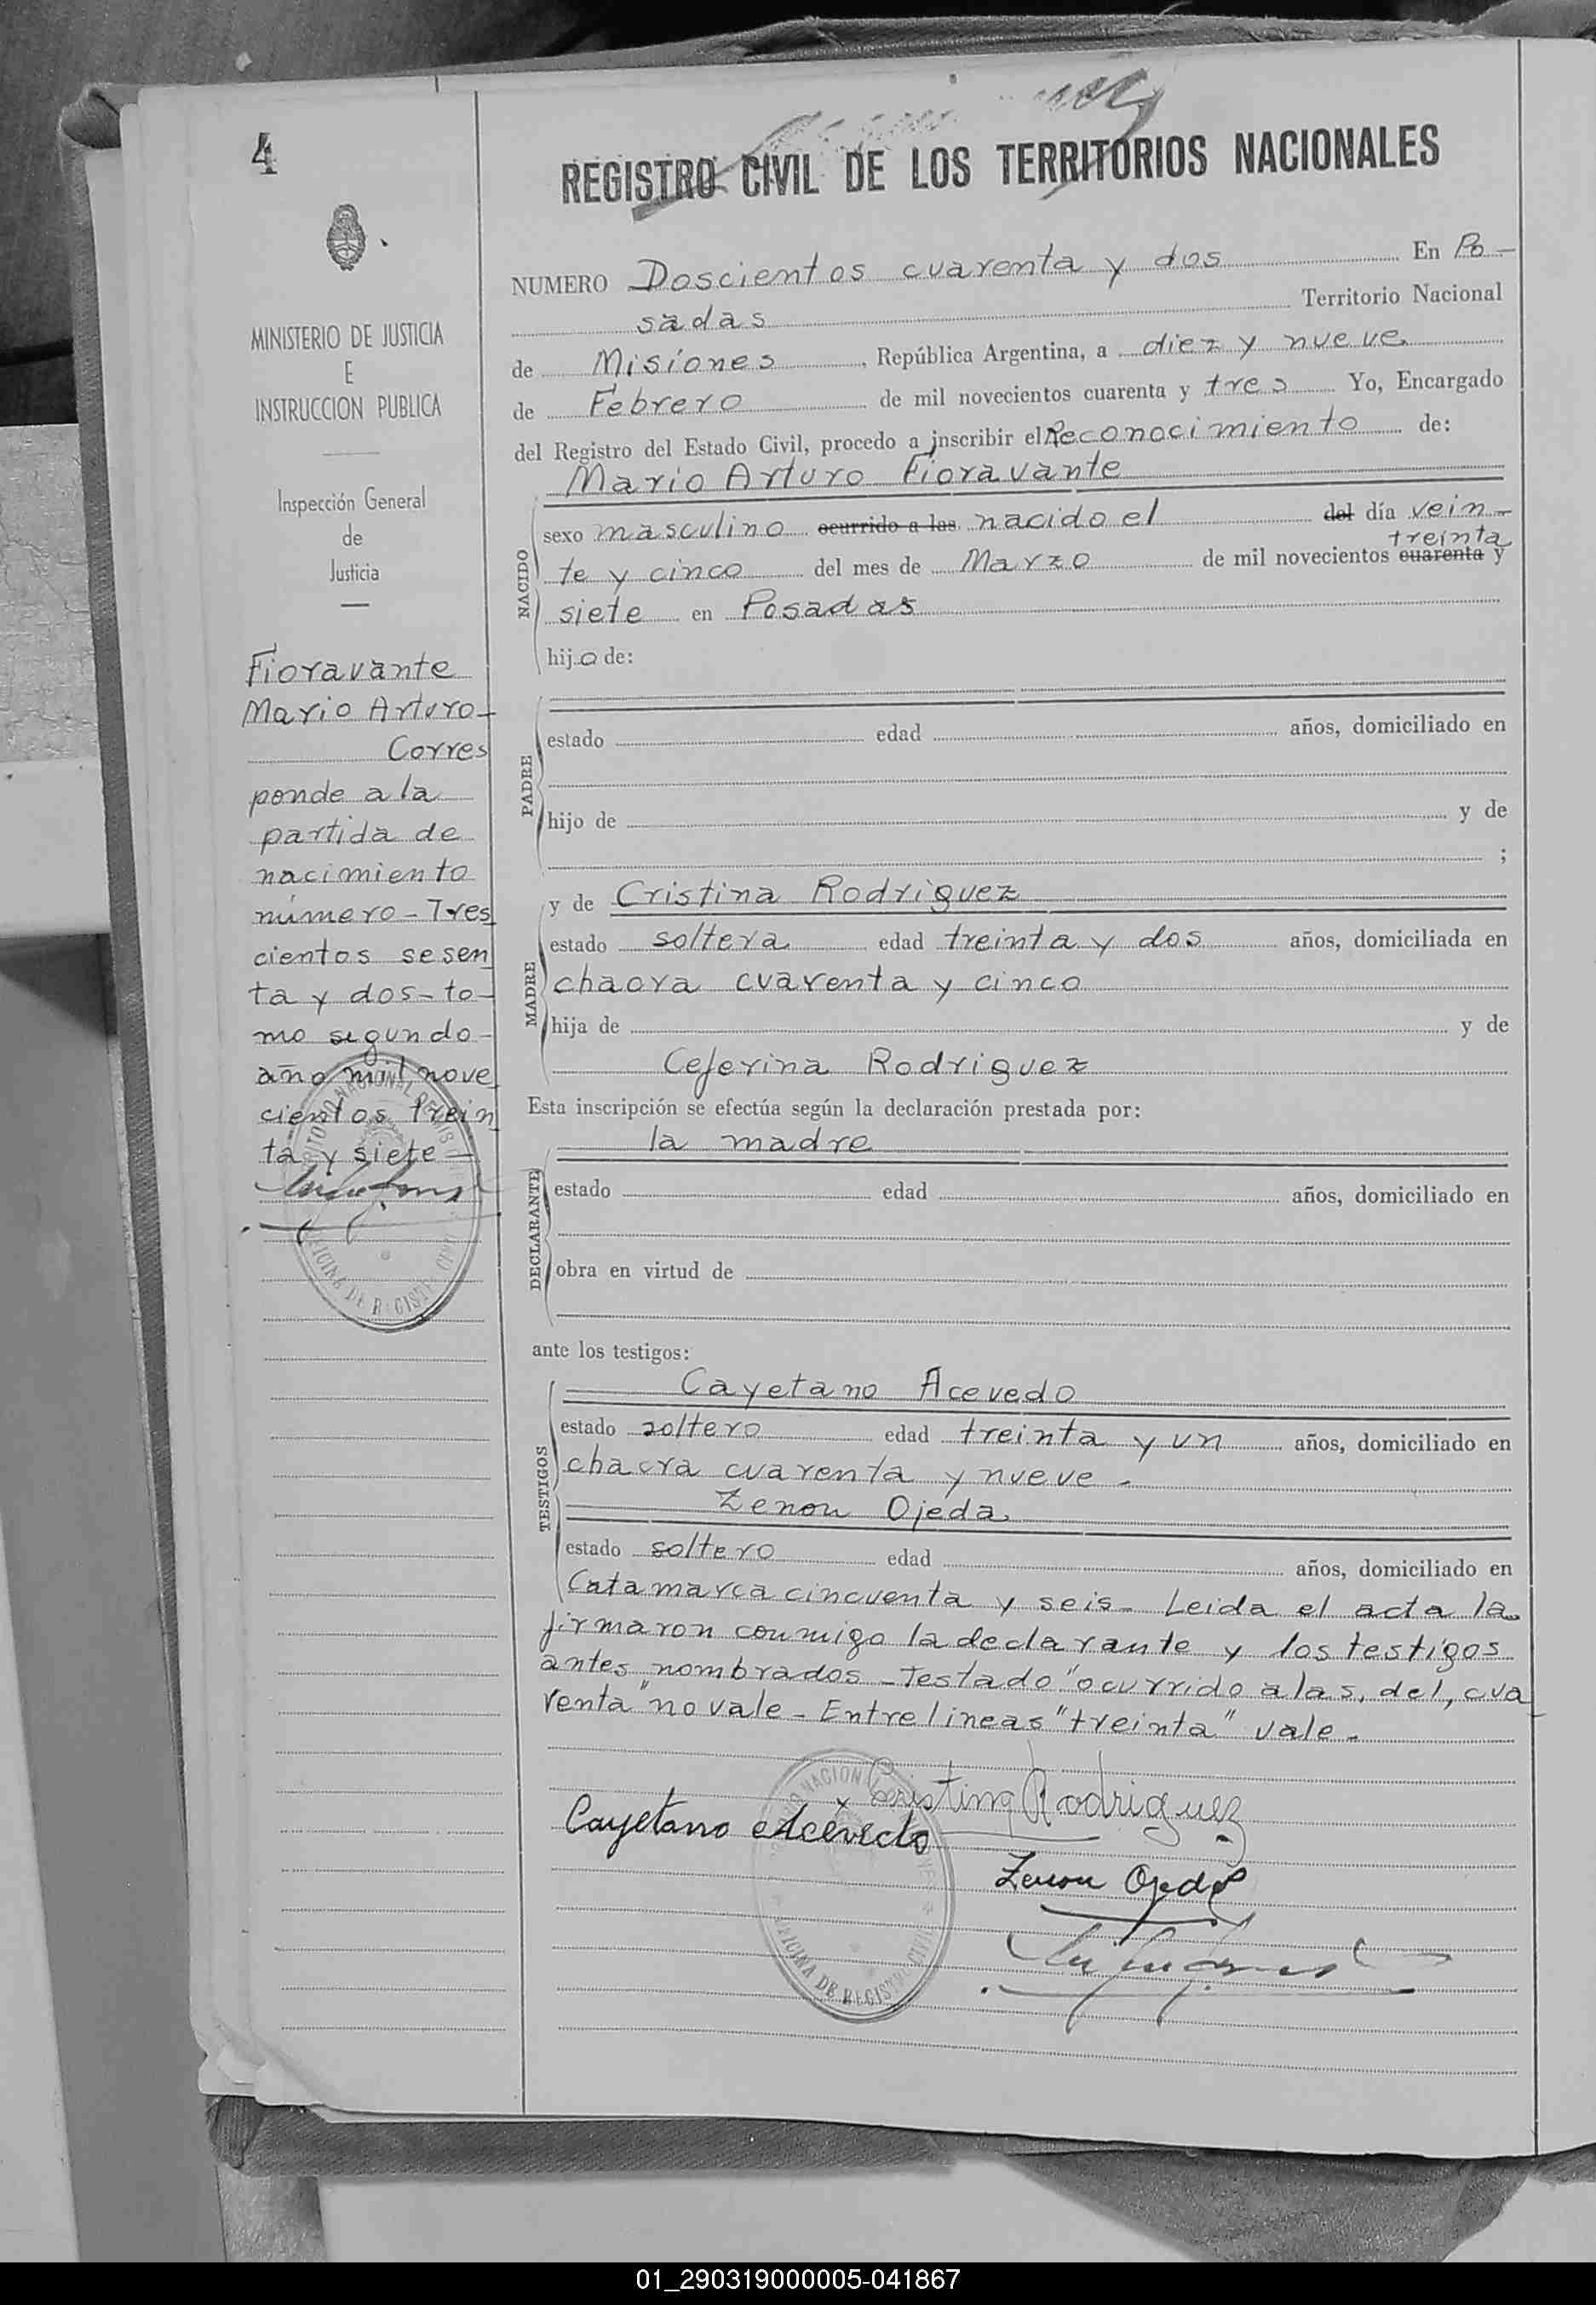 4
MINISTERIO DE JUSTICIA
E
INSTRUCCION PUBLICA
Inspección General
de
Justicia
Fioravante
Mario Arturo-
Corres
ponde a la
partida de
nacimiento
número - Tres
cientos sesen
ta y dos - to-
mo segundo -
año mil nove
cientos trein
ta y siete -
REGISTRO CIVIL DE LOS TERRITORIOS NACIONALES
NUMERO Doscientos cuarenta y dos En Po-
sadas Territorio Nacional
de Misiones, República Argentina, a diez y nueve
de Febrero de mil novecientos cuarenta y tres Yo, Encargado
del Registro del Estado Civil, procedo a inscribir el Reconocimiento de:
Mario Arturo Fioravante
NACIDO
sexo masculino ocurrido a las nacido el del día vein-
treinta
te y cinco del mes de Marzo de mil novecientos cuarenta y
siete en Posadas
hijo de:
PADRE
estado edad años, domiciliado en
hijo de y de
;
MADRE
y de Cristina Rodriguez
estado soltera edad treinta y dos años, domiciliada en
chacra cuarenta y cinco
hija de y de
Ceferina Rodriguez
Esta inscripción se efectúa según la declaración prestada por:
la madre
DECLARANTE
estado edad años, domiciliado en
obra en virtud de
ante los testigos:
TESTIGOS
Cayetano Acevedo
estado soltero edad treinta y un años, domiciliado en
chacra cuarenta y nueve -
Zenon Ojeda
estado soltero edad años, domiciliado en
Catamarca cincuenta y seis - Leida el acta la
firmaron conmigo la declarante y los testigos
antes nombrados - Testado "ocurrido a las, del, cua
renta" no vale - Entrelineas "treinta" vale -
Cristina Rodriguez
Cayetano Acevedo
Zenon Ojeda
OFICINA DE REGISTRO CIVIL
01_290319000005-041867